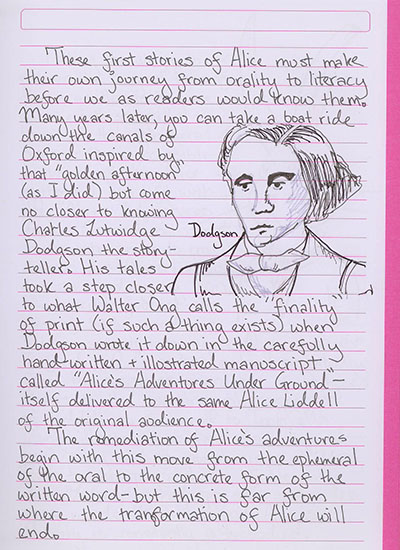 These first stories of Alice must make
their own journey from orality to literacy
before we as readers would know them.
Many years later, you can take a boat ride
down the canals of
Oxford inspired by
that "golden afternoon"
(as I did) but come
no closer to knowing
Charles Lutwidge
Dodgson the story-
teller. His tales
took a step closer
Dodgson
to what Walter Ong calls the "finality"
of print (if such a thing exists) when
Dodgson wrote it down in the carefully
hand-written + illustrated manuscript
called "Alice's Adventures Under Ground"-
itself delivered to the same Alice Liddell
of the original audience.
The remediation of Alice's adventures
begin with this move from the ephemeral
of the oral to the concrete form of the
written word-but this is far from
where the tranformation of Alice will
end.